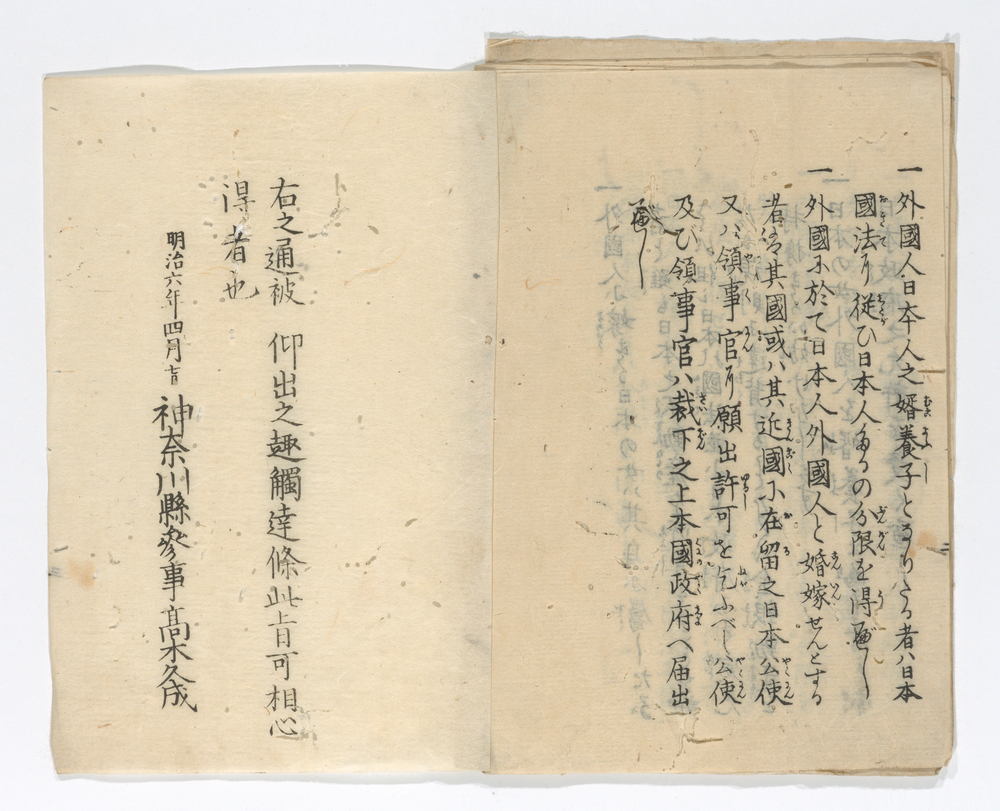 一 外國人日本人之婿養子となりたる者ハ日本
國法ニ従ひ日本人たるの分限を得べし
一 外國に於て日本人外國人と婚嫁せんとする
者ハ其國或ハ其近國に在留之日本公使
又ハ領事官に願出許可を乞ふべし公使
及び領事官ハ裁下之上本國政府へ届出
べし
右之通被 仰出之趣觸達條此旨可相心
得者也
明治六年四月
神奈川縣參事髙木久成